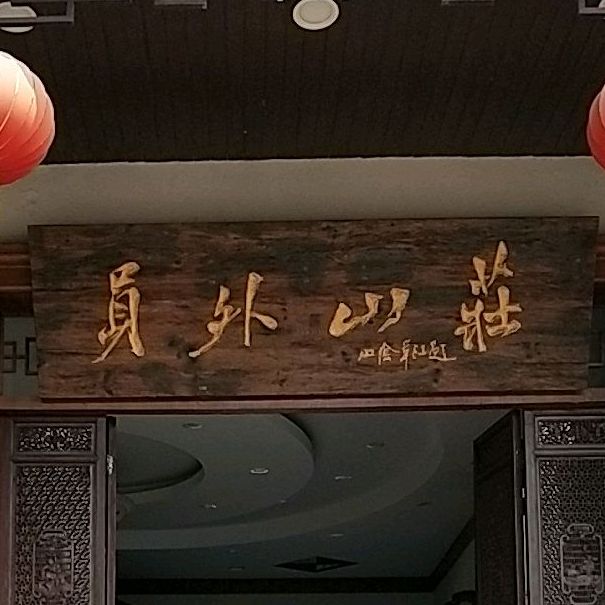 員外山莊